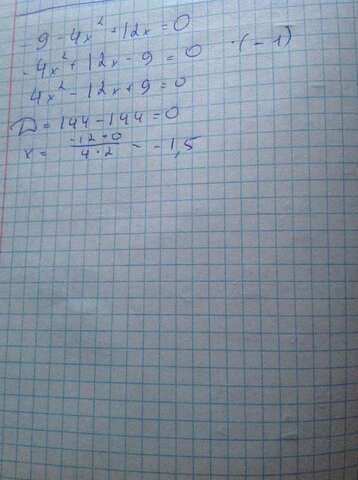 -9-4x²+12x=0
-4x²+12x-9=0 ·(-1)
4x²-12x+9=0
D=144-144=0
x= -12+0/4·2 = -1,5